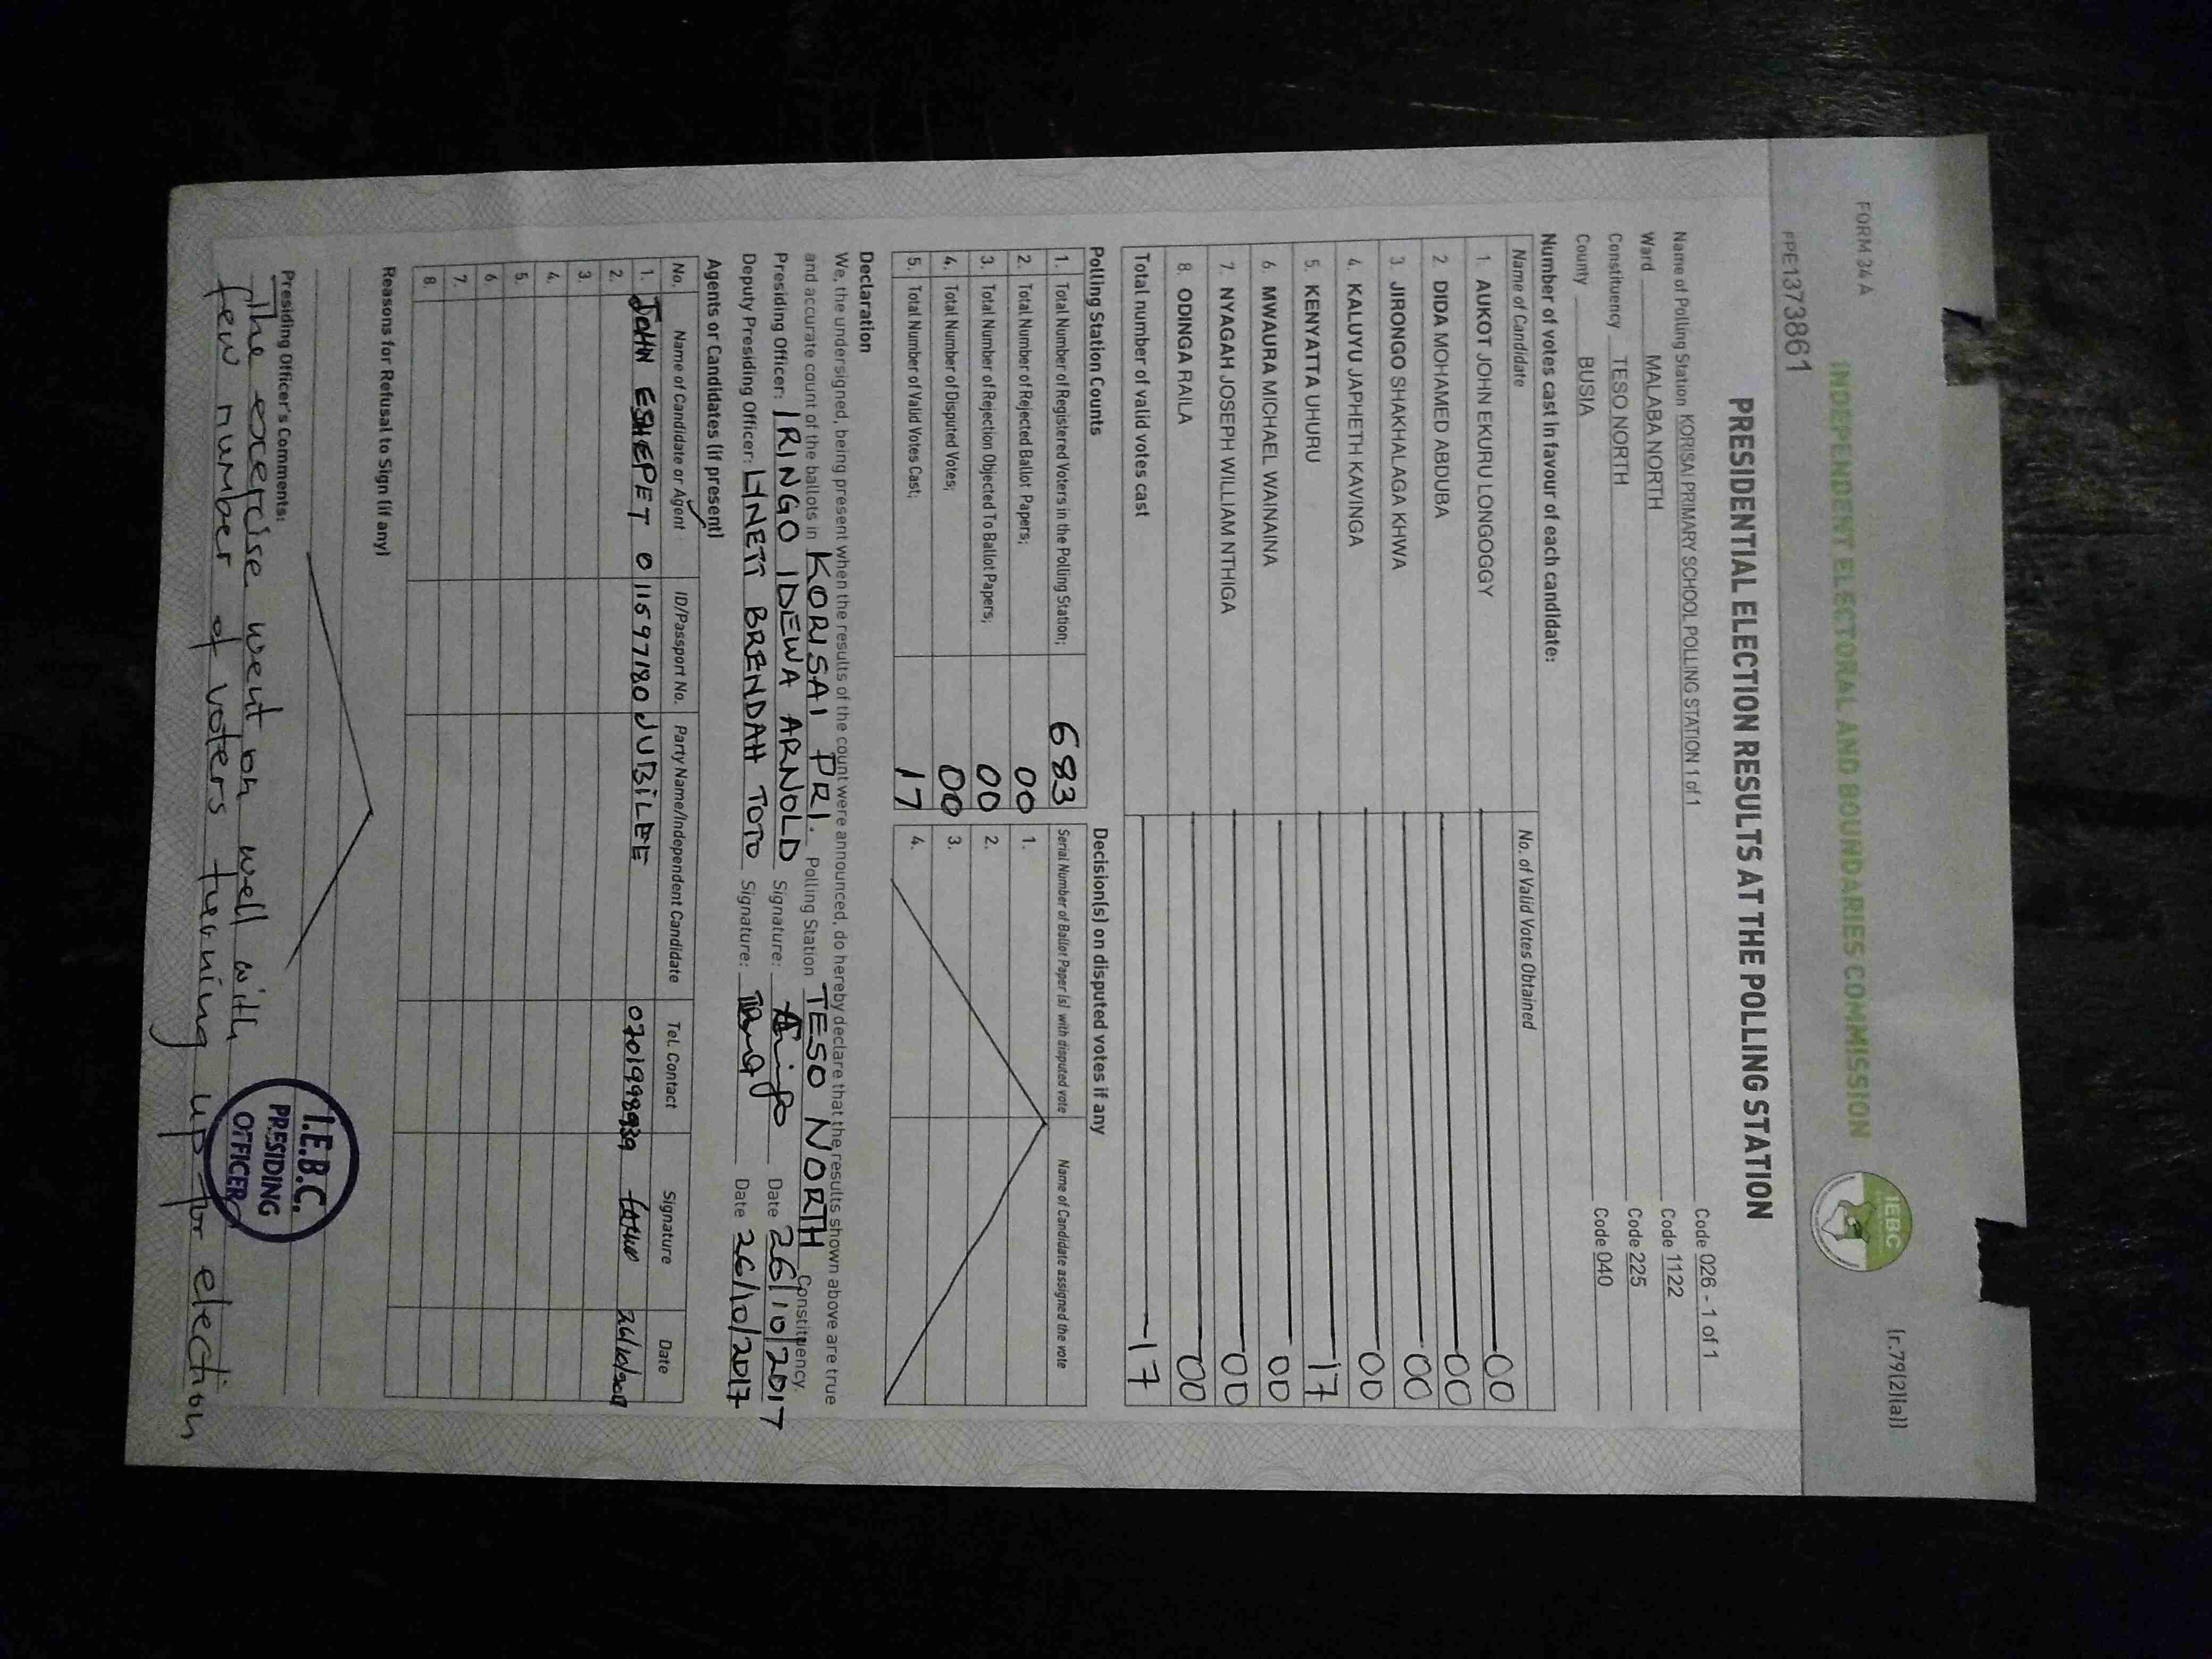 FORM 34 A
(r.79(2)(a))
INDEPENDENT ELECTORAL AND BOUNDARIES COMMISSION
IEBC
PPE1373861
PRESIDENTIAL ELECTION RESULTS AT THE POLLING STATION
Name of Polling Station KORISAI PRIMARY SCHOOL POLLING STATION 1 of 1 Code 026 - 1 of 1
Ward MALABA NORTH Code 1122
Constituency TESO NORTH Code 225
County BUSIA Code 040
Number of votes cast in favour of each candidate:
Name of Candidate No. of Valid Votes Obtained
1. AUKOT JOHN EKURU LONGOGGY 00
2. DIDA MOHAMED ABDUBA 00
3. JIRONGO SHAKHALAGA KHWA 00
4. KALUYU JAPHETH KAVINGA 00
5. KENYATTA UHURU 17
6. MWAURA MICHAEL WAINAINA 00
7. NYAGAH JOSEPH WILLIAM NTHIGA 00
8. ODINGA RAILA 00
Total number of valid votes cast 17
Polling Station Counts
1. Total Number of Registered Voters in the Polling Station; 683
2. Total Number of Rejected Ballot Papers; 00
3. Total Number of Rejection Objected To Ballot Papers; 00
4. Total Number of Disputed Votes; 00
5. Total Number of Valid Votes Cast; 17
Decision(s) on disputed votes if any
Serial Number of Ballot Paper (s) with disputed vote Name of Candidate assigned the vote
1.
2.
3.
4.
Declaration
We, the undersigned, being present when the results of the count were announced, do hereby declare that the results shown above are true
and accurate count of the ballots in KORISAI PRI. Polling Station TESO NORTH Constituency.
Presiding Officer: IRINGO IDEWA ARNOLD Signature: Date 26/10/2017
Deputy Presiding Officer: LYNETT BRENDAH TOTO Signature: Date 26/10/2017
Agents or Candidates (if present)
No. Name of Candidate or Agent ID/Passport No. Party Name/Independent Candidate Tel. Contact Signature Date
1. JOHN 011597180 JUBILEE 0701998939 26/10/2017
2.
3.
4.
5.
6
7.
8.
Reasons for Refusal to Sign (if any)
Presiding Officer's Comments:
The exercise went on well with
few number of voters turning up for election
I.E.B.C.
PRESIDING
OFFICER